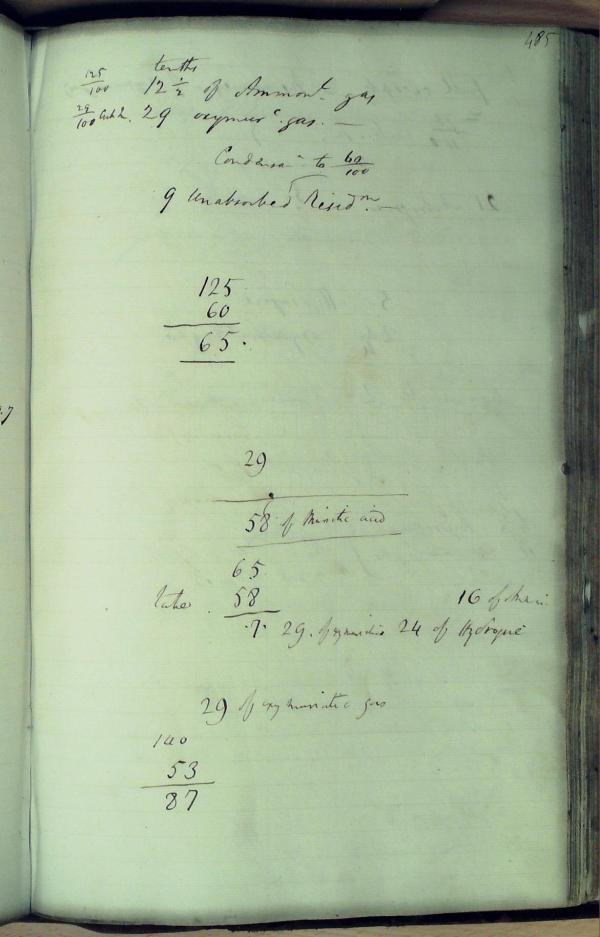 485
tenths
125/100 12 1/2 of Ammonl gas
29/100 Cub In. 29 oxymurc gas. —
Condensn to 60/100
9 Unabsorbed Residm —
125
60
65.
29
58 of Muriatic acid
65
takes 58 16 of
.7. 29. of oxymuriatic 24 of Hydrogne
29 of oxymuriatic gas
140
53
87
.7